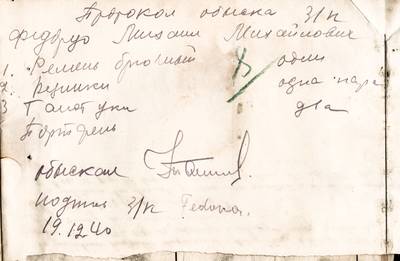 Протокол обыска З/К
Михаил Михайлович
1. Ремень брючный один
2. одна пара
3 Галстуки два
Портфель
обыскал
З/К Fedorov.
19.12.40